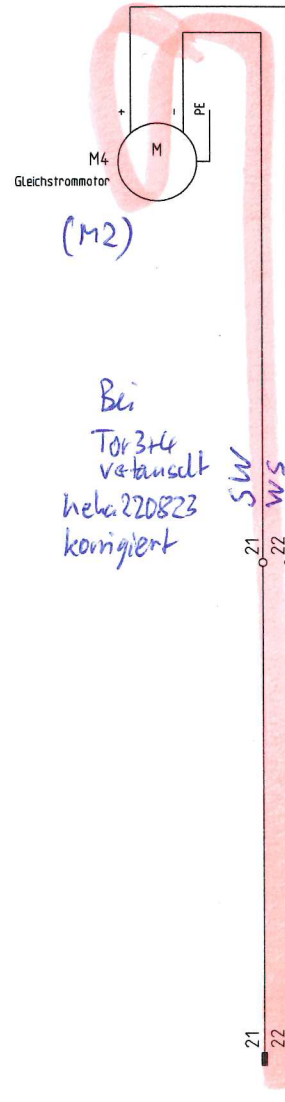 +
-
PE
M
M4
Gleichstrommotor
(M2)
Bei
Tor 3+4
vertauscht
heha 220823
korrigiert
SW
WS
21
22
21
22